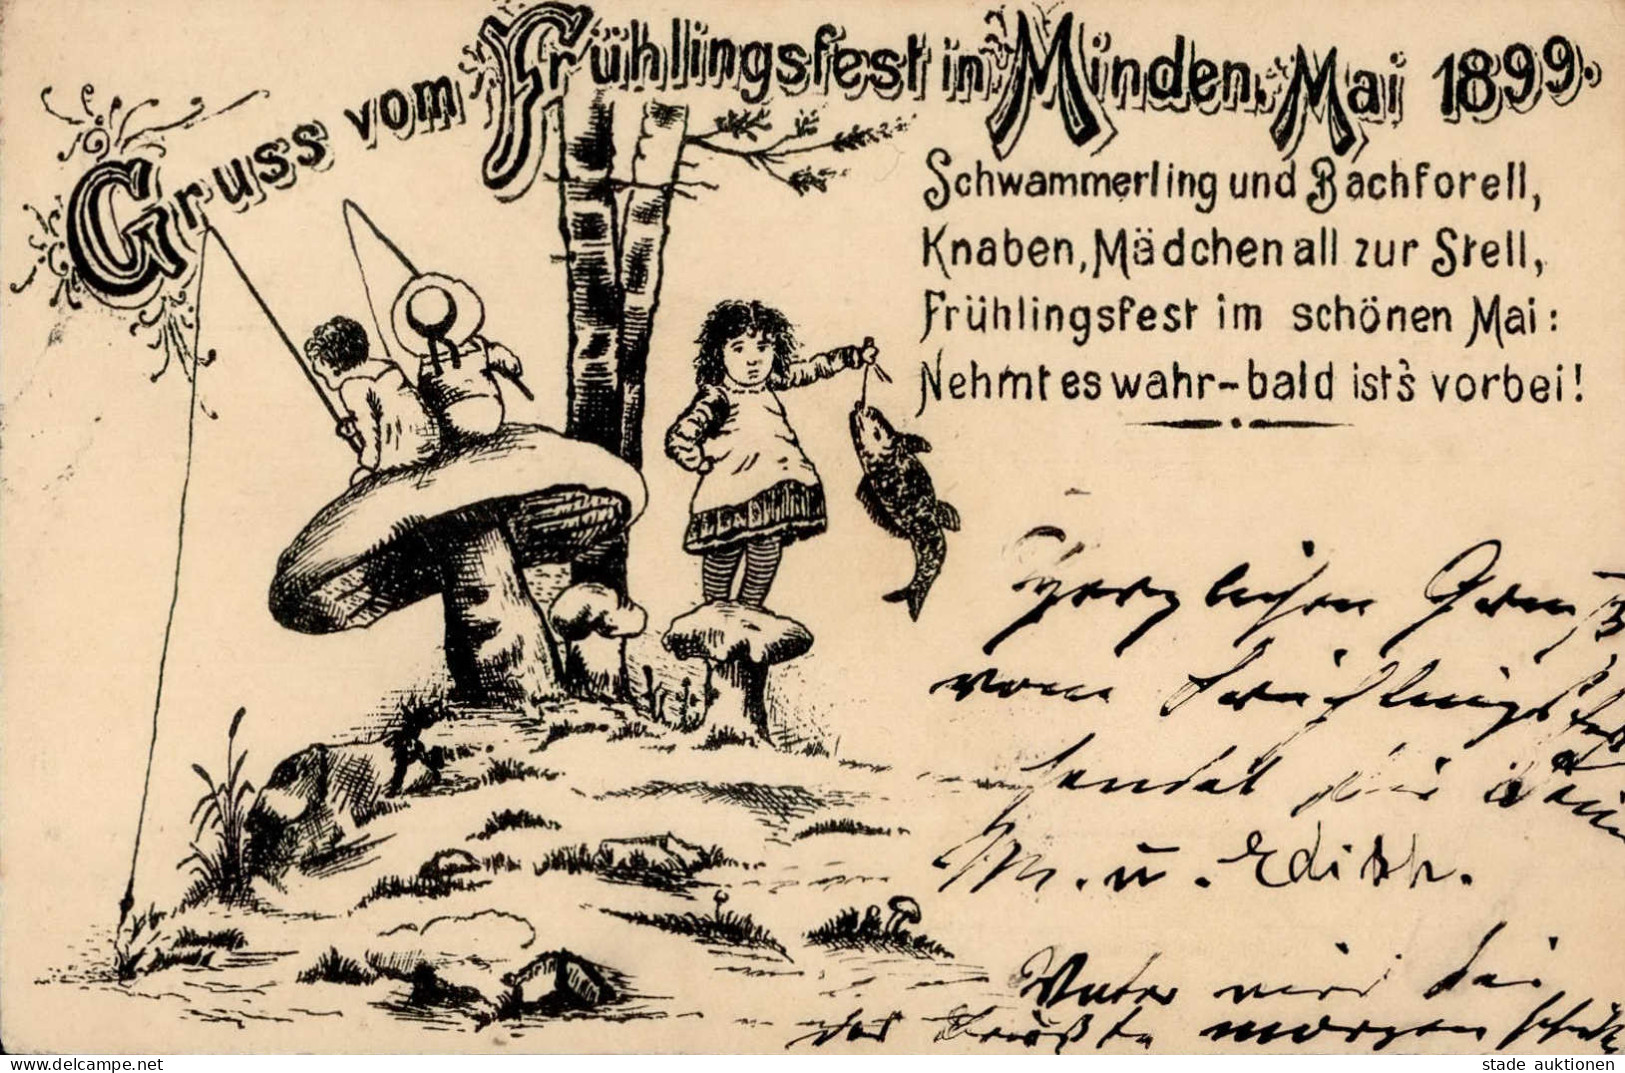 Gruss vom Frühlingsfest in Minden. Mai 1899.
Schwammerling und Bachforell,
Knaben, Mädchen all zur Stell,
Frühlingsfest im schönen Mai:
Nehmt es wahr-bald ist's vorbei!
Herzlichen Gruß
vom Frühlingsfest
sendet Dir Deine
M. u. Edith.
Vater wird bei
der morgen
stade auktionen